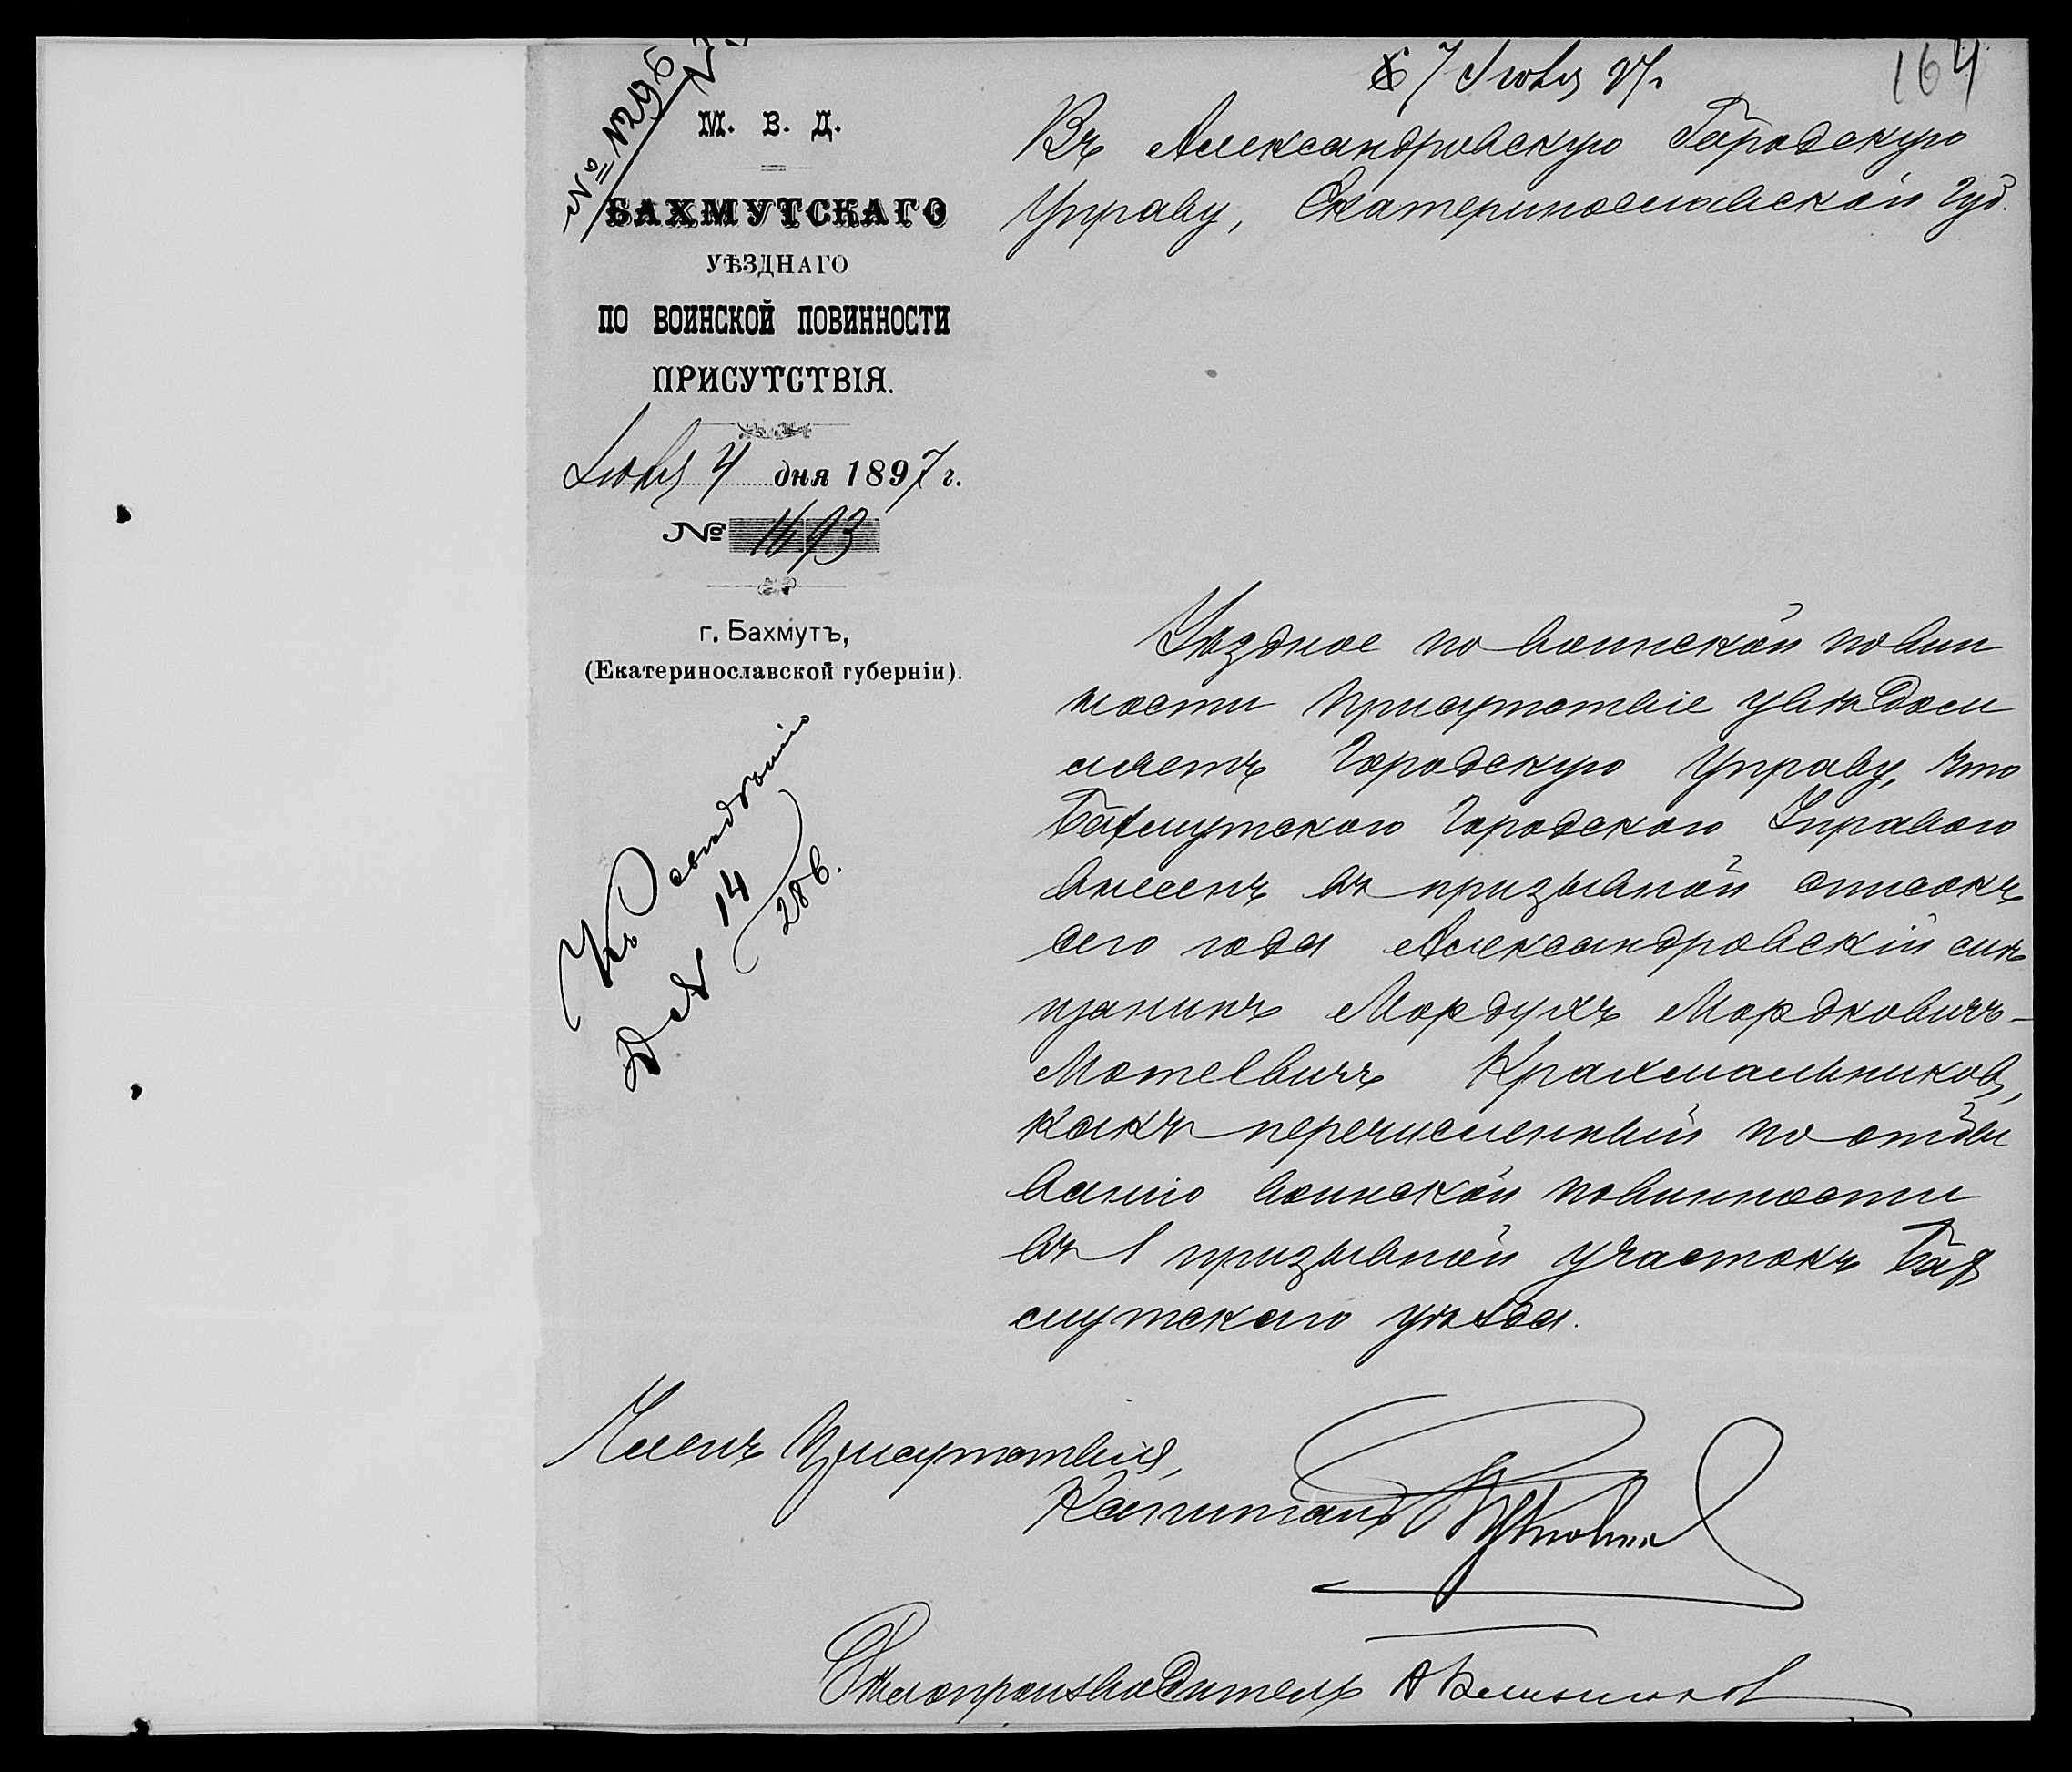 164
7 Іюля 97 г.
№ 12296
М. В. Д.
БАХМУТСКАГО
УѢЗДНАГО
ПО ВОИНСКОЙ ПОВИННОСТИ
ПРИСУТСТВІЯ.
Іюля 4 дня 1897 г.
№ 1693
г. Бахмутъ,
(Екатеринославской губерніи).
Къ свѣдѣнію
14
Въ Александровскую Городскую
Управу, Екатеринославской Губ.
Уѣздное по воинской повин
ности Присутствіе увѣдом
ляетъ Городскую Управу, что
Бахмутскою Городскою Управою
внесенъ въ призывной списокъ
сего года Александровскій мѣ
щанинъ Мордухъ Мордковичъ-
Мотелвичъ Крахмальников,
какъ перечисленный по отбы
ванію воинской повинности
въ 1 призывной участокъ Бах
мутскаго уѣзда.
Членъ Присутствія,
Капитанъ
Дѣлопроизводитель